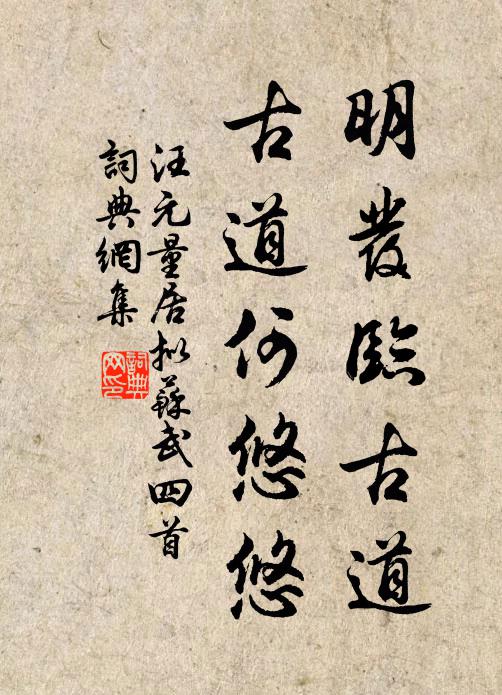 明發臨古道
古道何悠悠
汪元量居拟蘇武四首
詞典網集
詞典網印